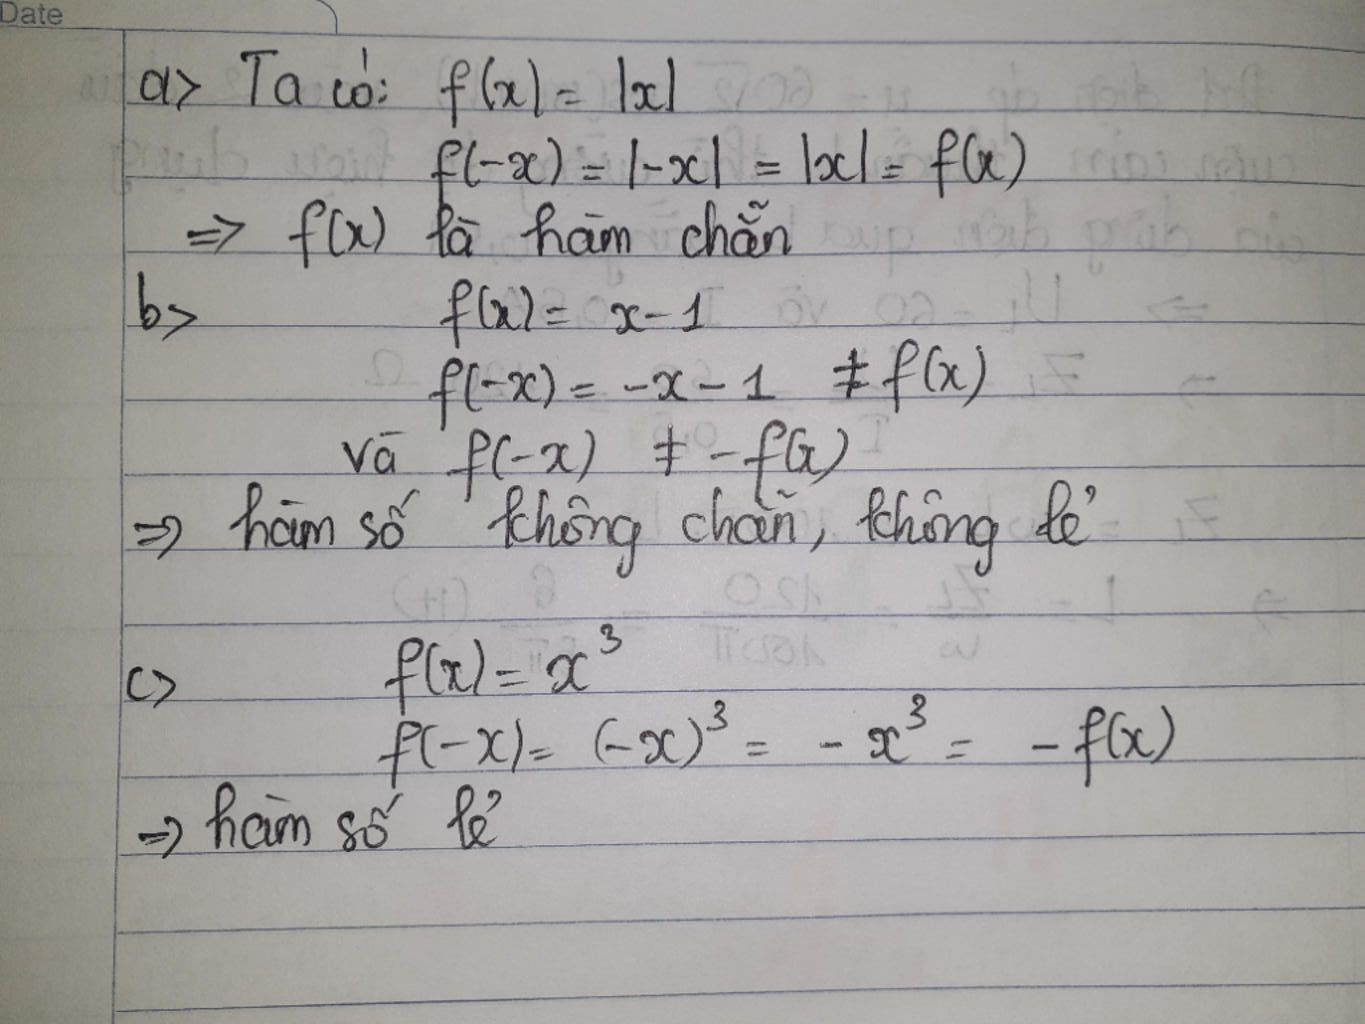 Date
a> Ta có: f(x) = |x|
f(-x) = |-x| = |x| = f(x)
=> f(x) là hàm chẵn
b> f(x) = x - 1
f(-x) = -x - 1 ≠ f(x)
và f(-x) ≠ -f(x)
=> hàm số không chẵn, không lẻ
c> f(x) = x³
f(-x) = (-x)³ = -x³ = -f(x)
=> hàm số lẻ